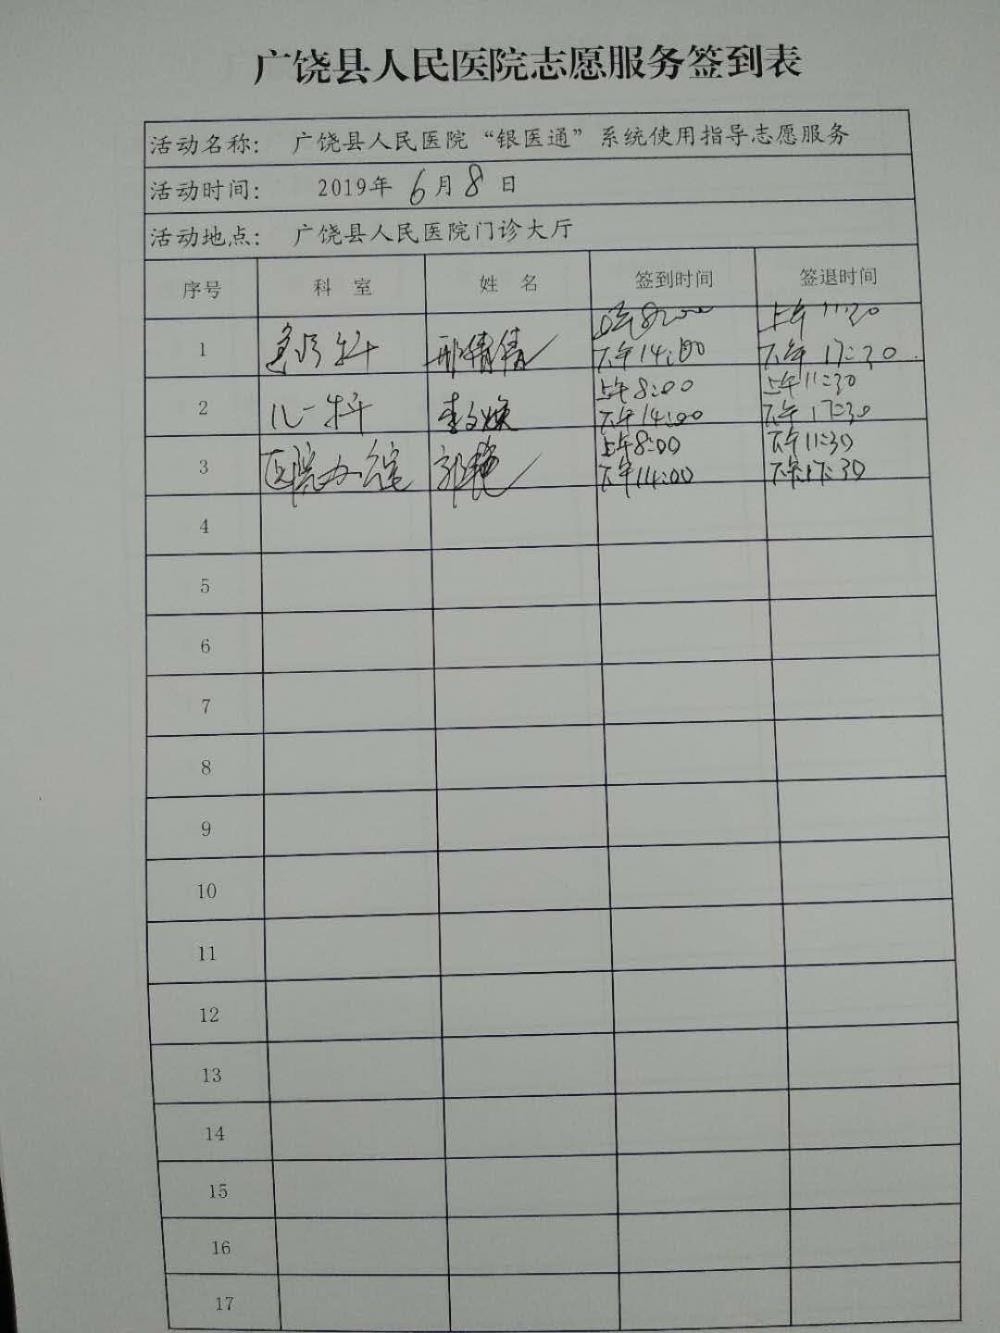 广饶县人民医院志愿服务签到表
活动名称： 广饶县人民医院“银医通”系统使用指导志愿服务
活动时间： 2019年 6月8日
活动地点： 广饶县人民医院门诊大厅
序号 科 室 姓 名 签到时间 签退时间
上午8:00 上午11:30
1 科 邢倩倩 下午14:00 下午17:30
上午8:00 上午11:30
2 儿一科 李文焕 下午14:00 下午17:30
上午8:00 下午11:30
3 医院办公室 郭艳 下午14:00 下午17:30
4
5
6
7
8
9
10
11
12
13
14
15
16
17